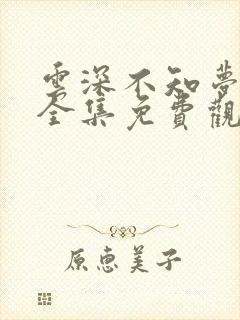 雲深不知夢
全集免費觀
原恵美子